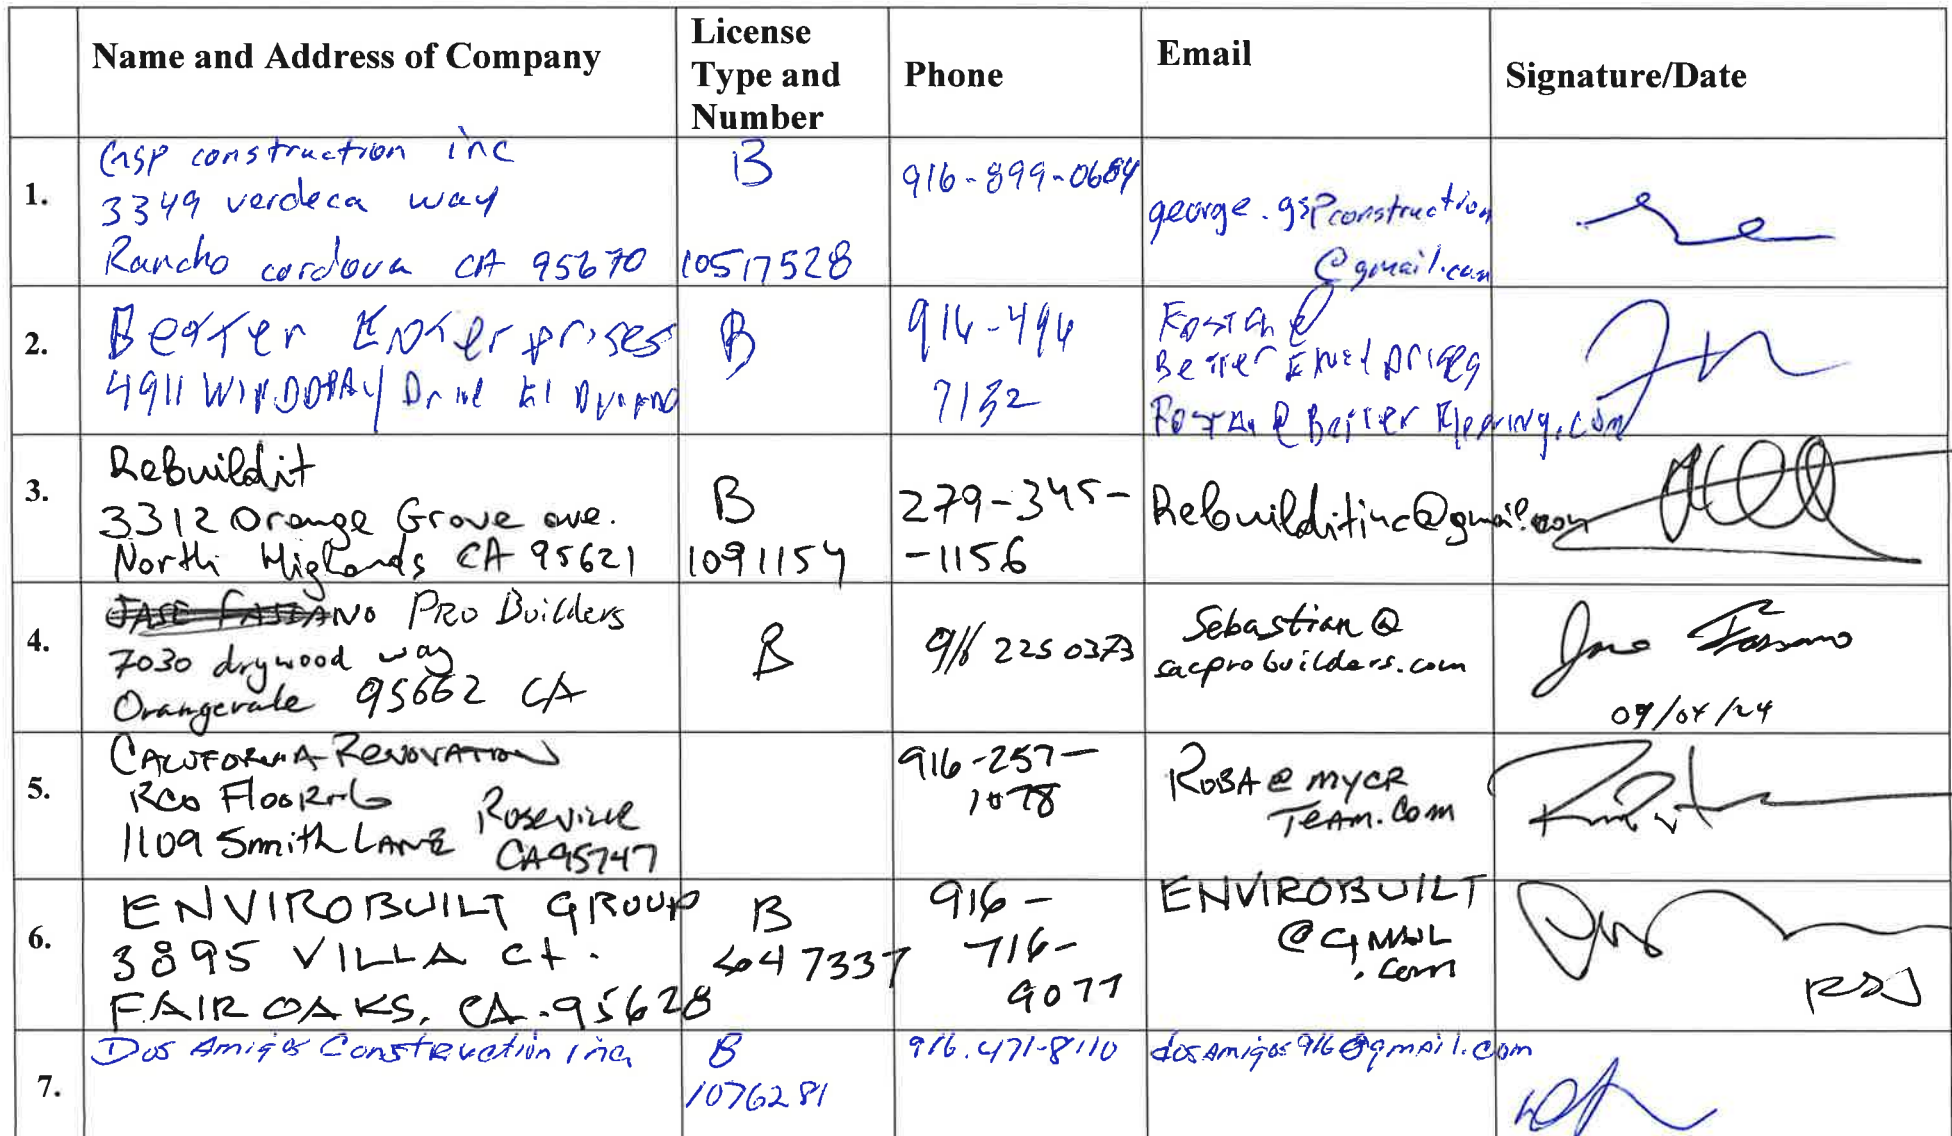 Name and Address of Company
License
Type and
Number
Phone
Email
Signature/Date
1.
GSP construction inc
3349 verdeca way
Rancho cordova CA 95670
B
10517528
916-899-0684
george.gspconstruction
@gmail.com
2.
Better Enterprises
4911 Drive El
B
914-494
7132
@
Better
3.
Rebuildit
3312 Orange Grove ave.
North Higlands CA 95621
B
1091154
279-345-
-1156
Rebuilditinc@gmail.com
4.
Pro Builders
7030 drywood way
Orangevale 95662 CA
B
916 225 0373
Sebastian@
sacprobuilders.com
Jase Fassano
09/04/24
5.
CALIFORNIA RENOVATION
RCO Flooring
1109 Smith LANE Roseville
CA 95747
916-257-
1078
ROBA@MYCR
TEAM.COM
6.
ENVIROBUILT GROUP
3895 VILLA Ct.
FAIR OAKS, CA. 95628
B
1047337
916-
716-
9077
ENVIROBUILT
@GMAIL
.com
7.
Dos Amigos Construction inc
B
1076281
916.471-8110
dosamigos916@gmail.com